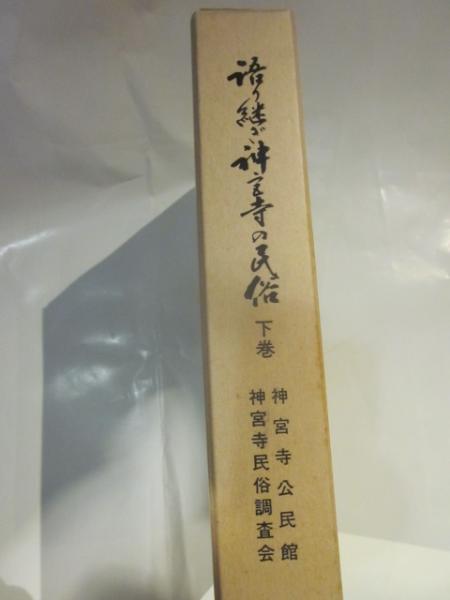 語り継ぐ神宮寺の民俗
下巻
神宮寺公民館
神宮寺民俗調査会